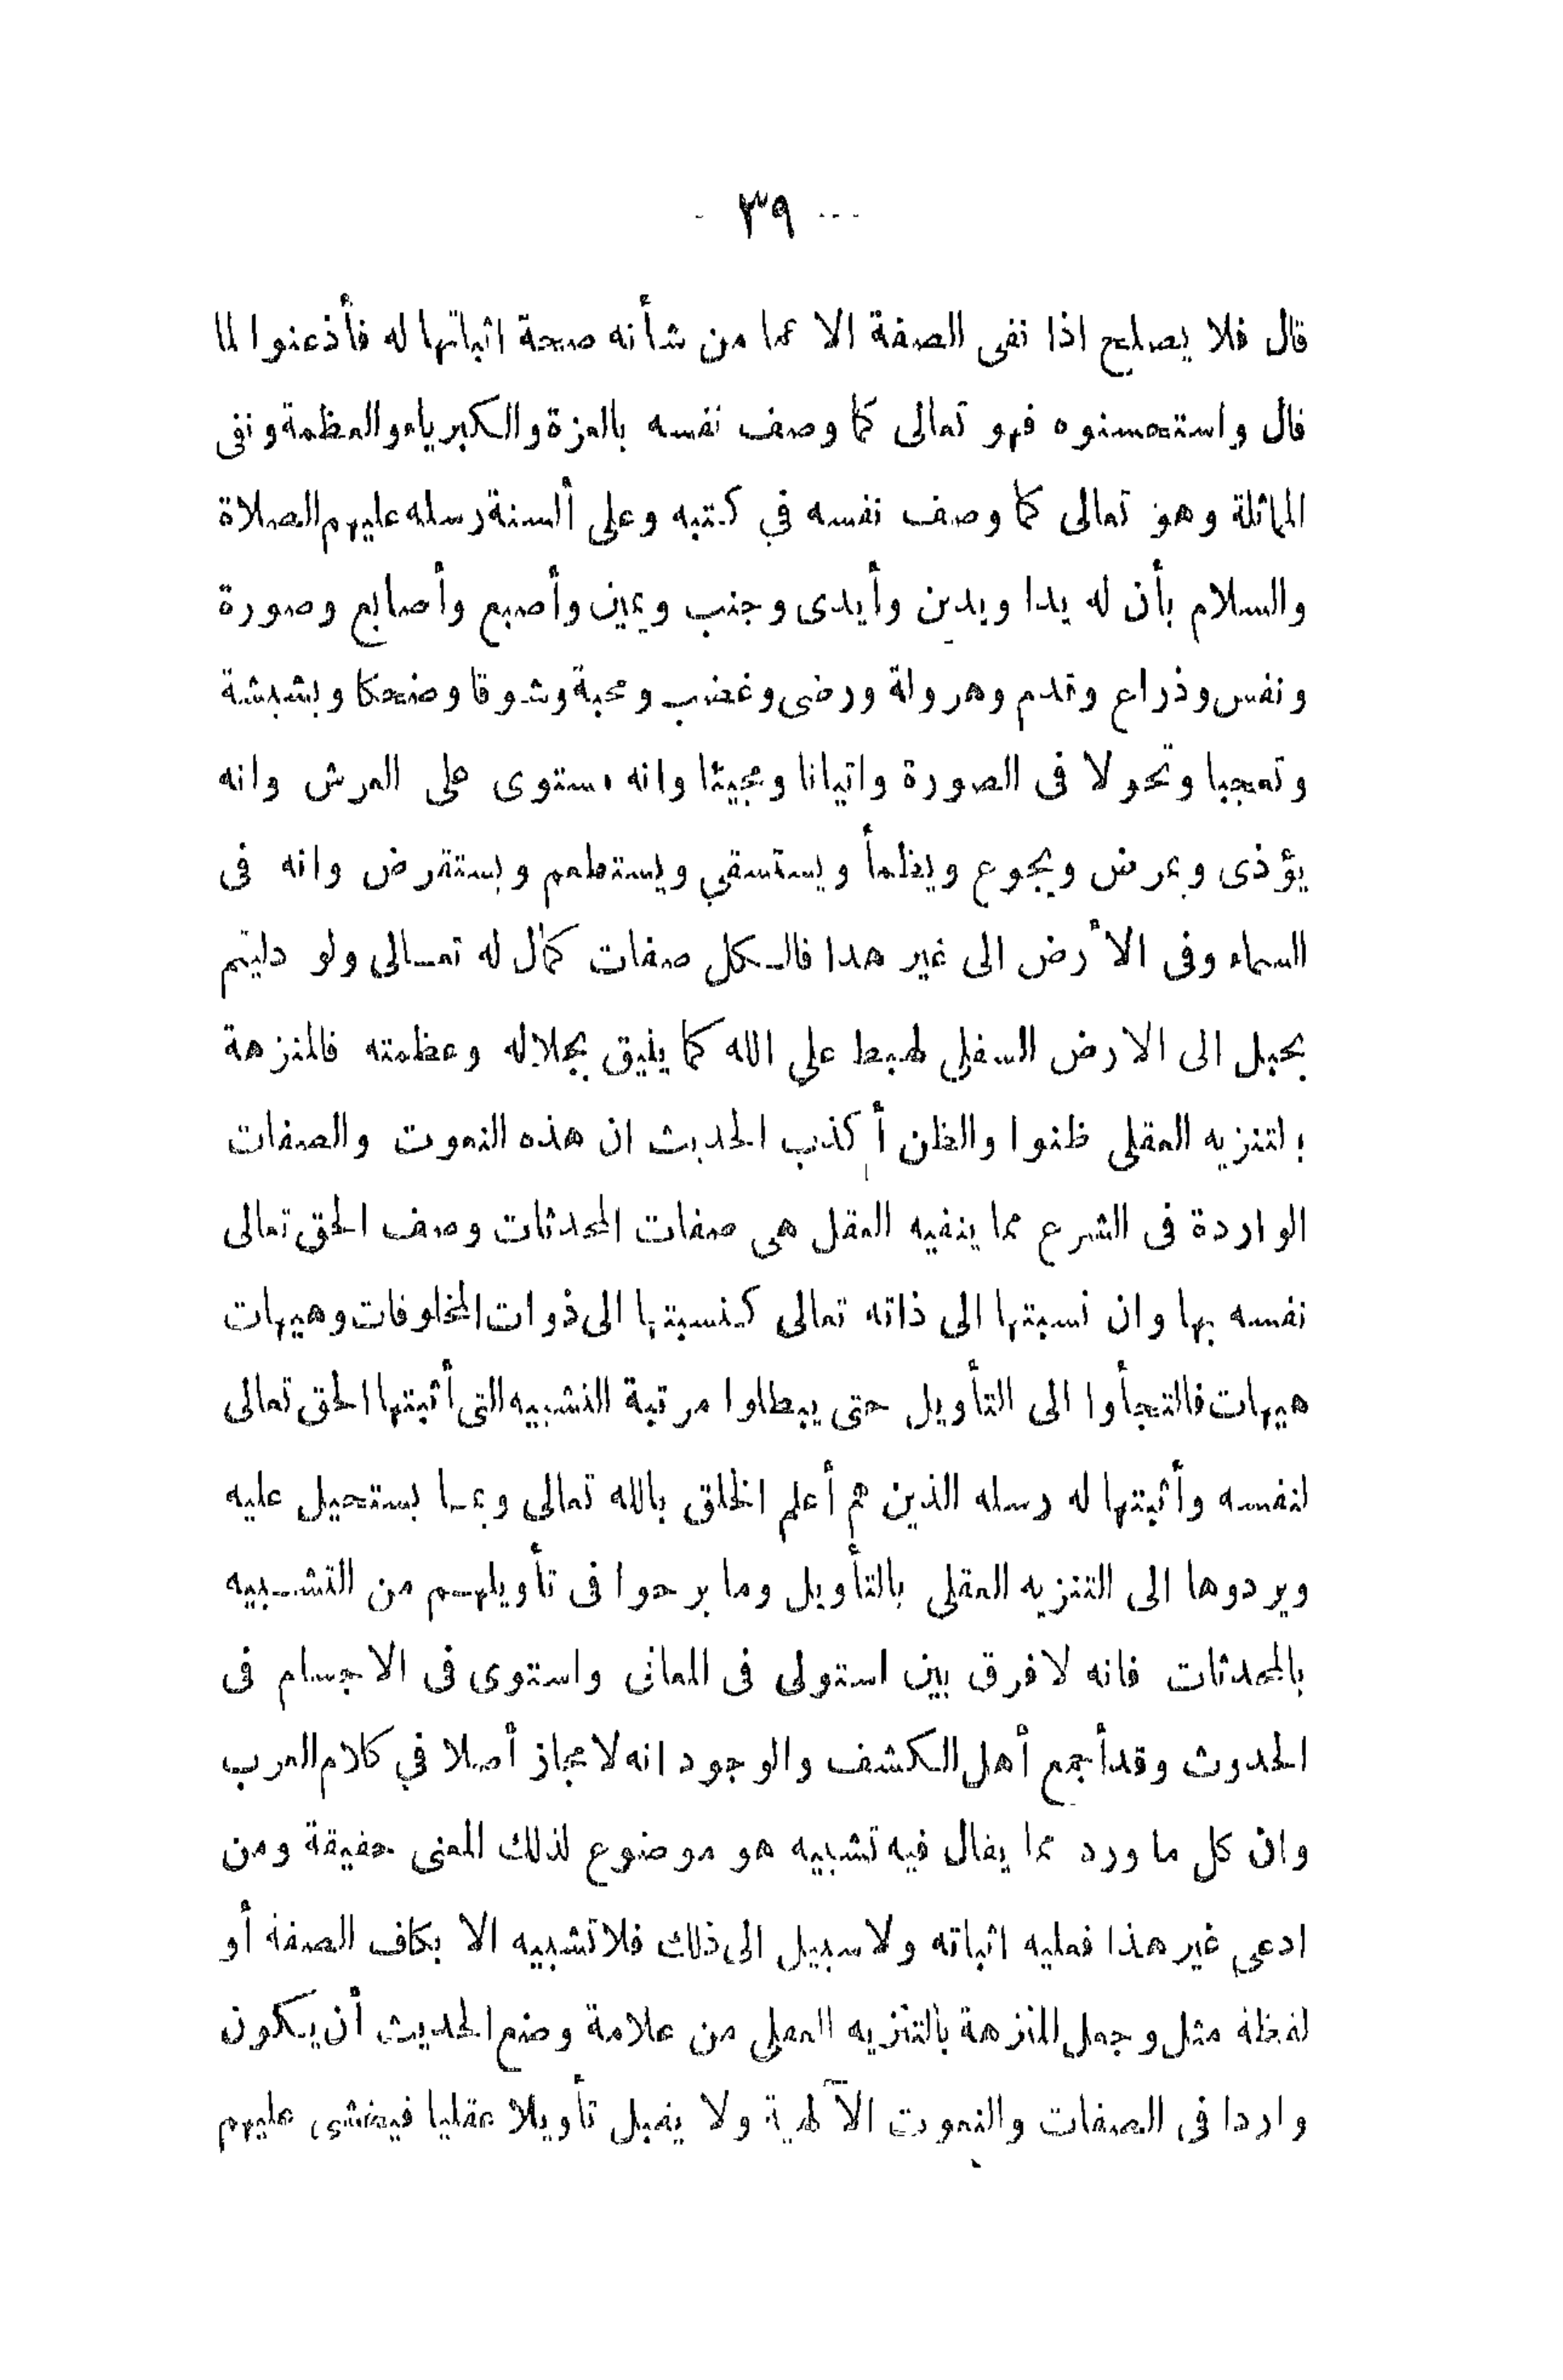 ٣٩
قال فلا يصلح اذا نفى الصفة الا عما من شأنه صحة اثباتها له فأذعنوا لما
قال واستحسنوه فهو تعالى كما وصف نفسه بالعزة والكبرياء والعظمة ونفى
المماثلة وهو تعالى كما وصف نفسه في كتبه وعلى ألسنة رسله عليهم الصلاة
والسلام بأن له يدا ويدين وأيدى وجنب ويمين وأصبع وأصابع وصورة
ونفس وذراع وقدم وهرولة ورضى وغضب ومحبة وشوقا وضحكا وبشبشة
وتعجبا وتحولا فى الصورة واتيانا ومجيئا وانه استوى على العرش وانه
يؤذى ويمرض ويجوع ويظمأ ويستسقي ويستطعم ويستقرض وانه فى
السماء وفى الأرض الى غير هدا فالكل صفات كمال له تعالى ولو دليتم
بحبل الى الارض السفلي لهبط على الله كما يليق بجلاله وعظمته فالمنزهة
بالتنزيه العقلى ظنوا والظن أكذب الحديث ان هذه النعوت والصفات
الواردة فى الشرع مما ينفيه العقل هى صفات المحدثات وصف الحق تعالى
نفسه بها وان نسبتها الى ذاته تعالى كنسبتها الى ذوات المخلوقات وهيهات
هيهات فالتجأوا الى التأويل حتى يبطلوا مرتبة التشبيه التى أثبتها الحق تعالى
لنفسه وأثبتها له رسله الذين هم أعلم الخلق بالله تعالى وبما يستحيل عليه
ويردوها الى التنزيه العقلى بالتأويل وما برحوا فى تأويلهم من التشبيه
بالمحدثات فانه لا فرق بين استولى فى المعانى واستوى فى الاجسام فى
الحدوث وقد أجمع أهل الكشف والوجود انه لا مجاز أصلا في كلام العرب
وان كل ما ورد مما يقال فيه تشبيه هو موضوع لذلك المعنى حقيقة ومن
ادعى غير هذا فعليه اثباته ولا سبيل الى ذلك فلا تشبيه الا بكاف الصفة أو
لفظة مثل وجعل المنزهة بالتنزيه العقلي من علامة وضع الحديث أن يكون
واردا فى الصفات والنعوت الآلهية ولا يقبل تأويلا عقليا فيخشى عليهم